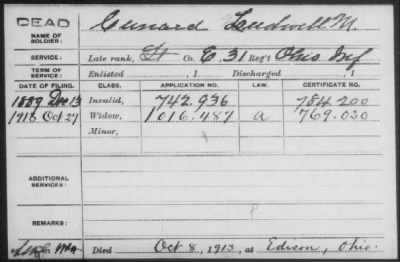 DEAD Cunard Ludwell M.
NAME OF
SOLDIER:
SERVICE: Late rank, Lt Co. E. 31 Reg't Ohio Inf
TERM OF
SERVICE: Enlisted , 1 Discharged , 1
DATE OF FILING. CLASS. APPLICATION NO. LAW. CERTIFICATE NO.
1889 Dec 13 Invalid, 742.936 784.200
1913 Oct 27 Widow, 1016.487 a 769.030
Minor,
ADDITIONAL
SERVICES:
REMARKS:
Died Oct 8, 1913, at Edison, Ohio.